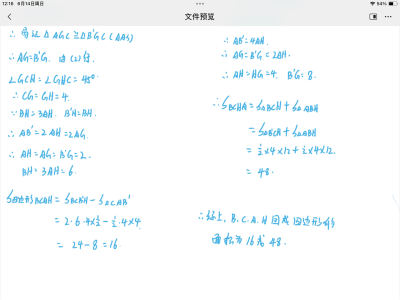 12:18 6月14日周日
94%
文件预览
∴易证△AGC≌△B'GC (AAS)
∴AG=B'G. 由(2)得.
∠GCH=∠GHC=45°
∴CG=GH=4.
∵BH=3AH. B'H=BH.
∴AB'=2AH=2AG.
∴AH=AG=B'G=2.
BH=3AH=6.
S四边形BCAH=S△BCB'H-S△CAB'
=2·6·4×½-½·4×4
=24-8=16.
∴AB'=4AH.
∴AG=B'G=2AH.
∴AH=HG=4. B'G=8.
∴SBCHA=S△BCH+S△ABH
=S△BCH+S△ABH
=½×4×12+½×4×12.
=48.
∴综上, B.C.A.H围成四边形的
面积为16或48.